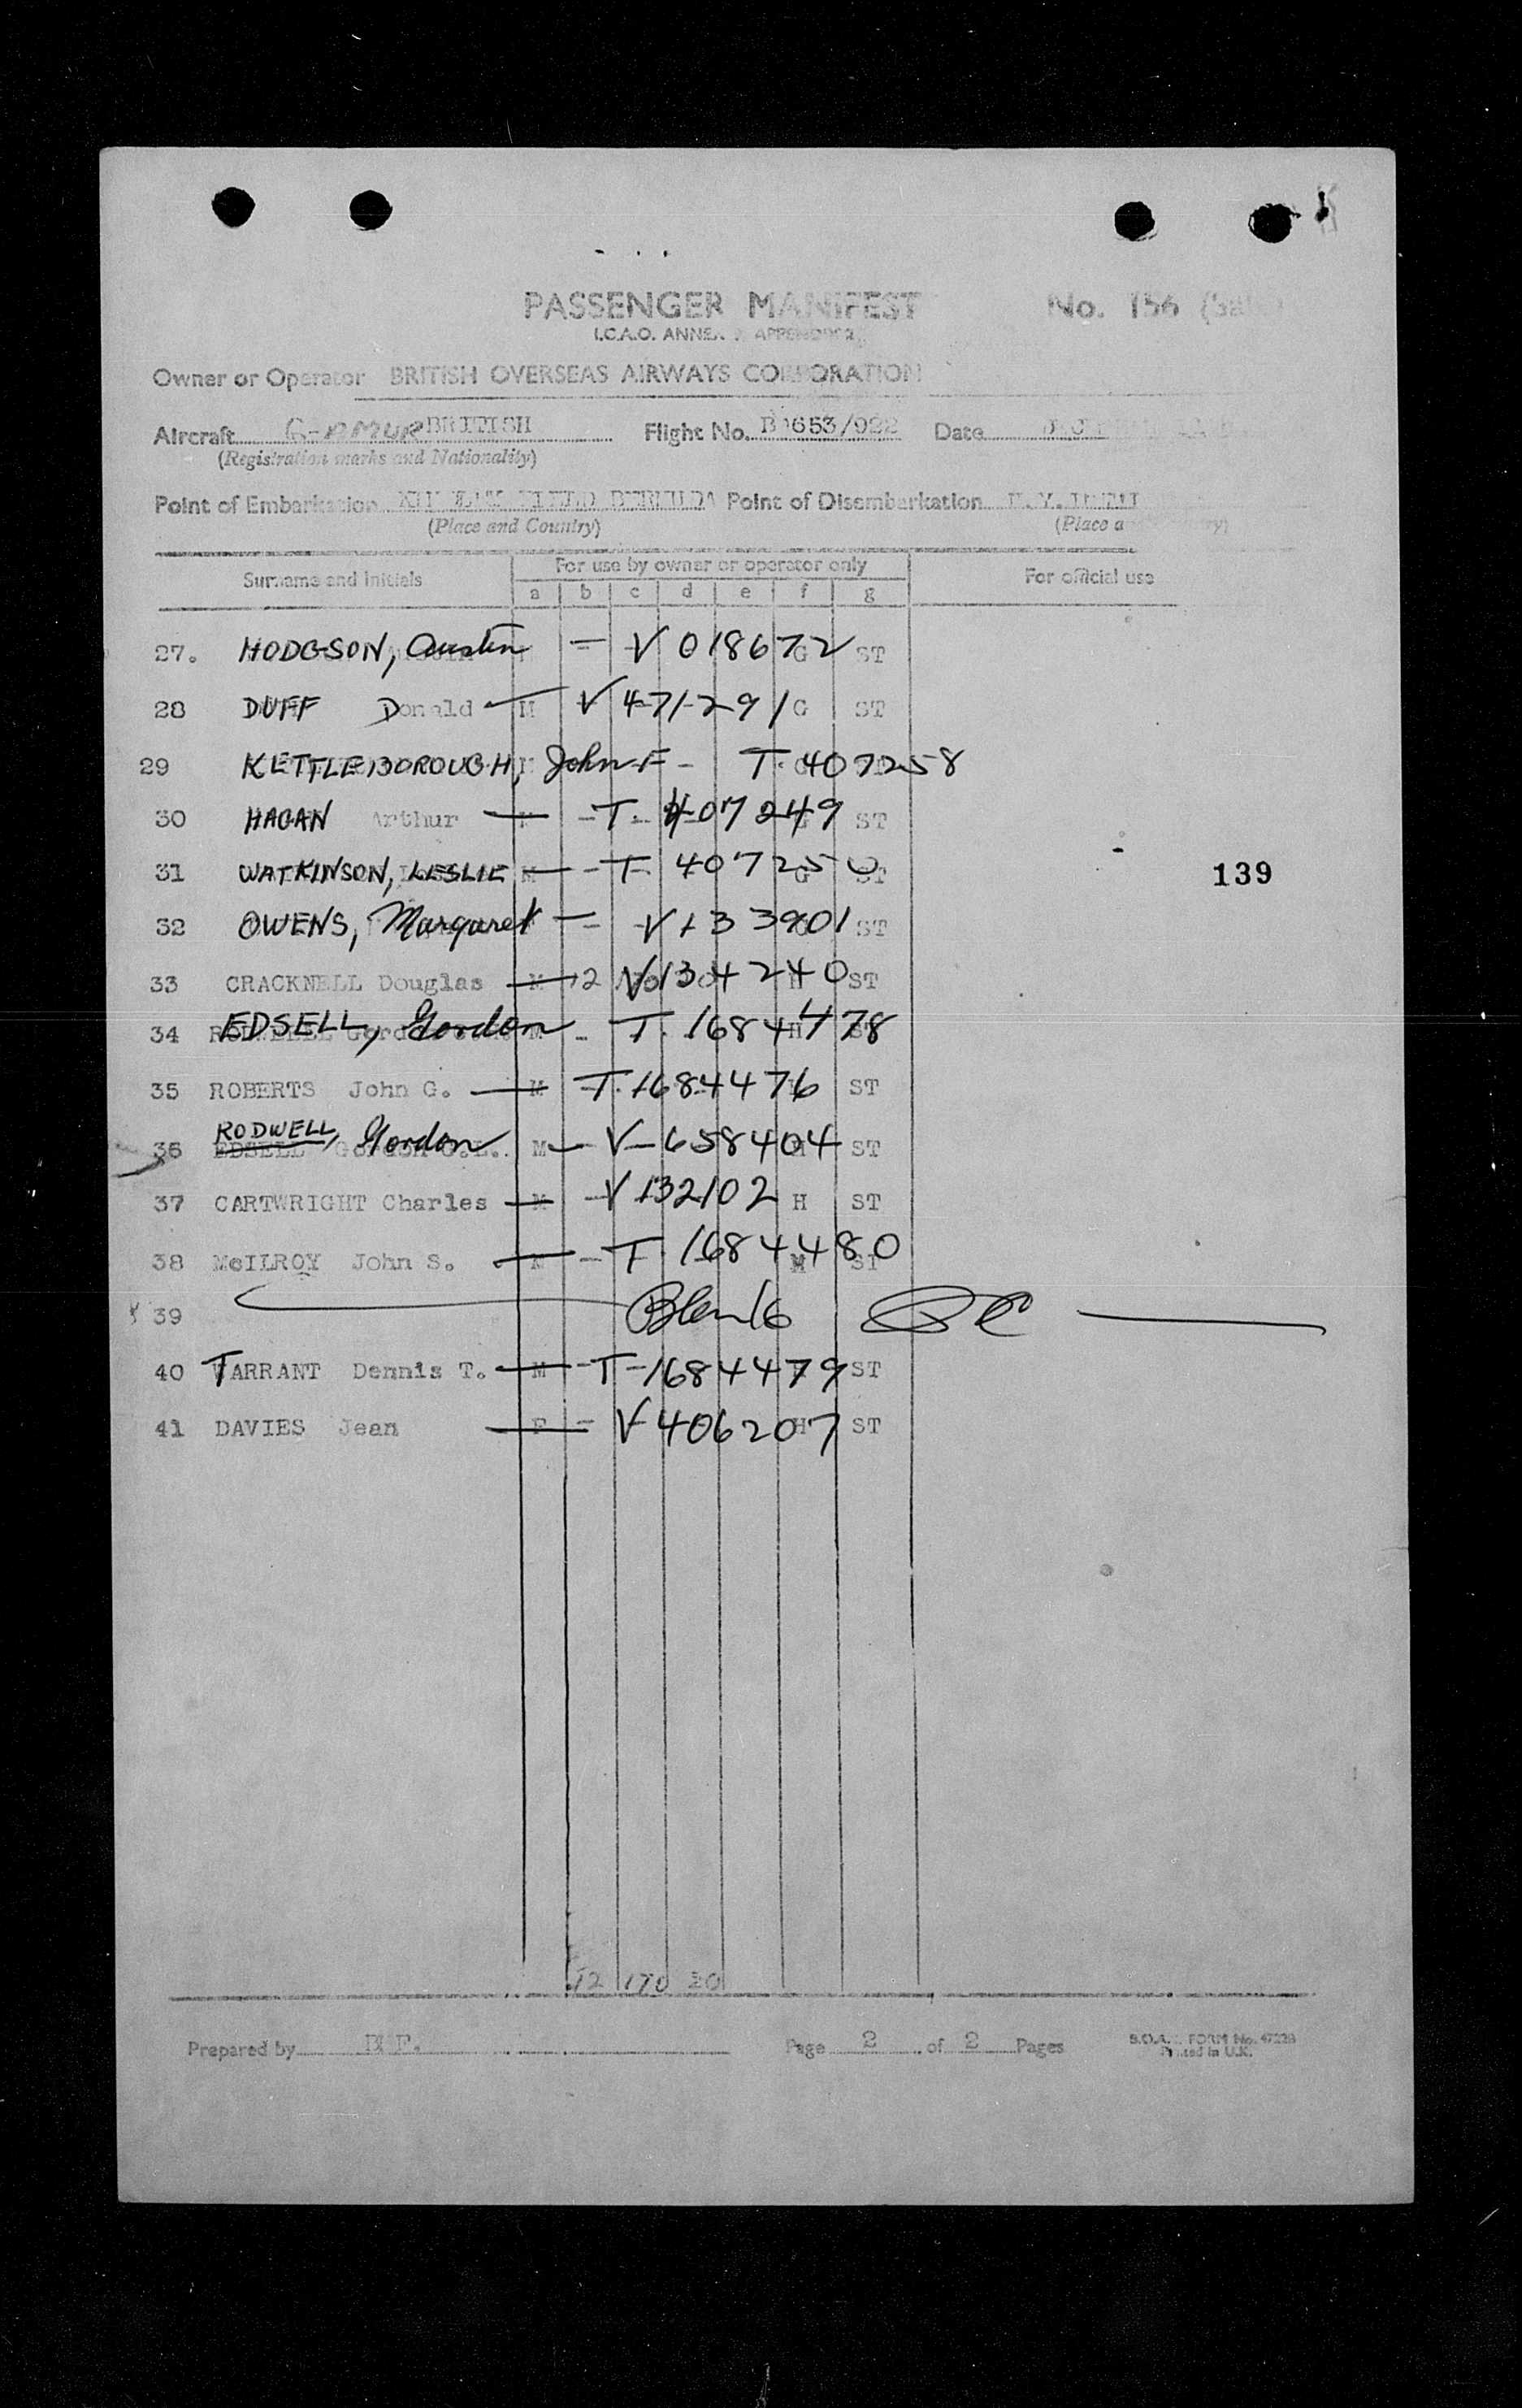 PASSENGER MANIFEST No. 156
I.C.A.O. ANNEX APPENDIX
Owner or Operator BRITISH OVERSEAS AIRWAYS CORPORATION
Aircraft G-AMUR BRITISH Flight No. 653/022 Date
(Registration marks and Nationality)
Point of Embarkation KINDLEY FIELD BERMUDA Point of Disembarkation N.Y.
(Place and Country) (Place a ry)
Surname and Initials For use by owner or operator only For official use
a b c d e f g
27. HODGSON, Austin - V 018672 G ST
28 DUFF Donald M V 471291 G ST
29 KETTLEBOROUGH, John F - T. 407258
30 HAGAN Arthur - T. 407249 ST
31 WATKINSON, LESLIE M - T 407250 G ST
139
32 OWENS, Margaret - V133901 ST
33 CRACKNELL Douglas M 12 V1304240 ST
34 EDSELL, Gordon - T. 1684478
35 ROBERTS John G. M - T. 1684476 ST
36 RODWELL, Gordon EDSELL M - V-658404 ST
37 CARTWRIGHT Charles M - V132102 H ST
38 McILROY John S. M - T. 1684480 ST
39 Blank
40 TARRANT Dennis T. M - T-1684479 ST
41 DAVIES Jean F - V406207 H ST
12 170 20
Prepared by Page 2 of 2 Pages FORM No.
Printed in U.K.